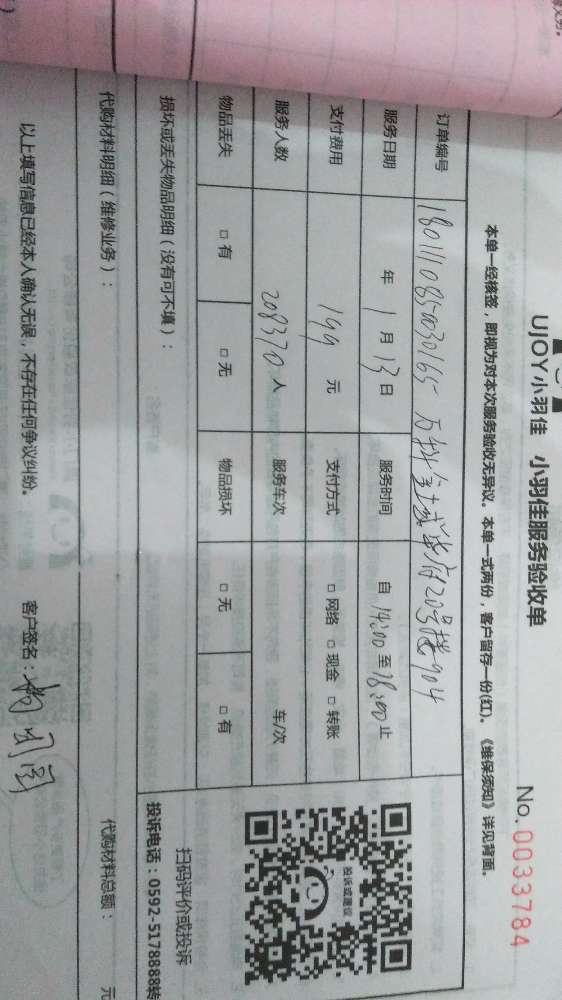 UJOY小羽佳 小羽佳服务验收单
No. 0033784
本单一经核签，即视为对本次服务验收无异议。本单一式两份，客户留存一份(红)。《维保须知》详见背面。
订单编号 180111085003165 万科金域华府20号楼904
服务日期 年 1 月 13 日 服务时间 自 14:00 至 18:00 止
支付费用 199 元 支付方式 □ 网络 □ 现金 □ 转账
服务人数 208370 人 服务车次 车/次
物品丢失 □ 有 □ 无 物品损坏 □ 无 □ 有
投诉或建议
扫码评价或投诉
投诉电话：0592-5178888转
损坏或丢失物品明细（没有可不填）：
代购材料明细（维修业务）：
代购材料总额： 元
以上填写信息已经本人确认无误，不存在任何争议纠纷。
客户签名：